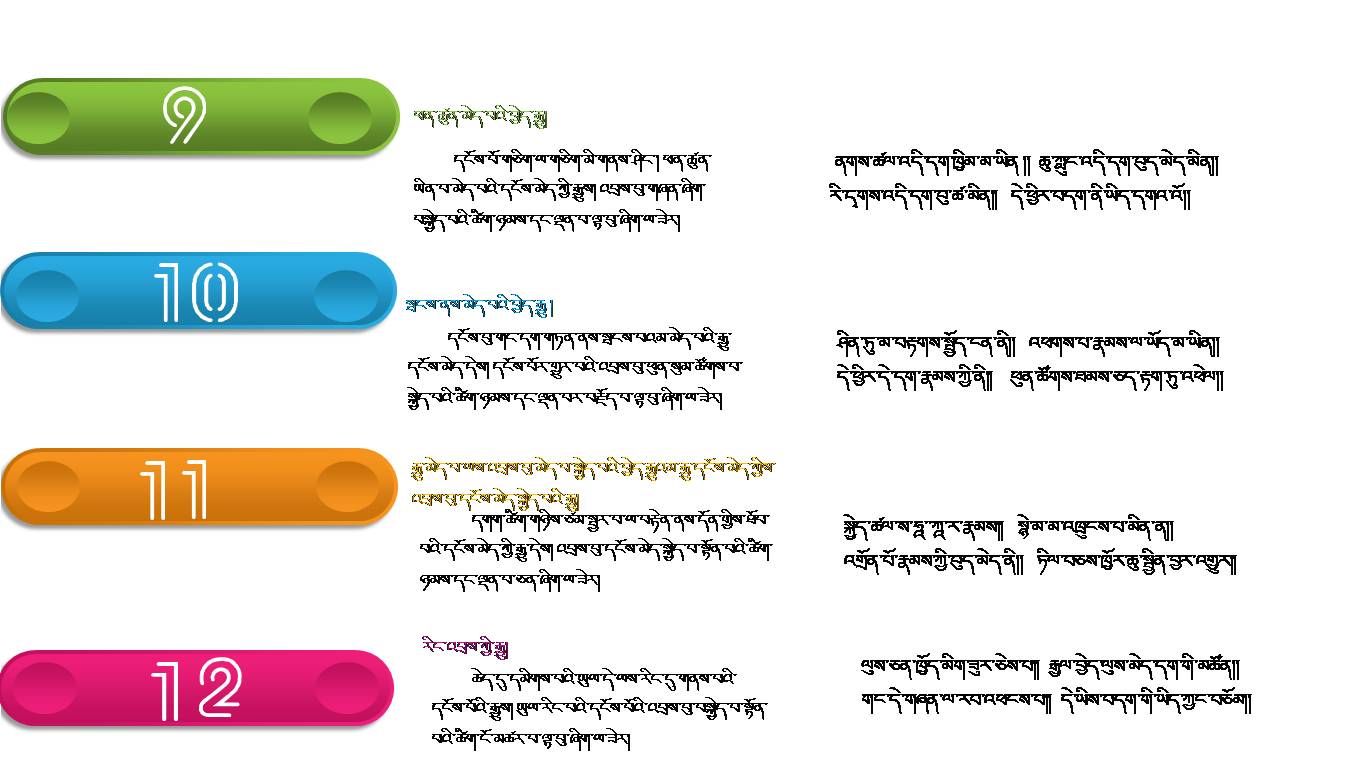 9
ཕན་ཚུན་མེད་པའི་བྱེད་རྒྱུ།
དངོས་པོ་གཅིག་ལ་གཅིག་མི་གནས་ཤིང་། ཕན་ཚུན་
ཡིན་པ་མེད་པའི་དངོས་མེད་ཀྱི་རྒྱུས། འབྲས་བུ་གཞན་ཞིག་
བསྐྱེད་པའི་ཚིག་ཉམས་དང་ལྡན་པ་ལྟ་བུ་ཞིག་ལ་ཟེར།
ནགས་ཚལ་འདི་དག་ཁྱིམ་མ་ཡིན།། ཆུ་ཀླུང་འདི་དག་བུད་མེད་མིན།།
རི་དྭགས་འདི་དག་བུ་ཚ་མིན།། དེ་ཕྱིར་བདག་ནི་ཡིད་དགའ་འོ།།
10
སྔངས་ནས་མེད་པའི་བྱེད་རྒྱུ།
དངོས་པོ་གང་དག་གཏན་ནས་སྔངས་པའམ་མེད་པའི་རྒྱུ་
དངོས་མེད་དེས། དངོས་པོར་གྱུར་པའི་འབྲས་བུ་ཕུན་སུམ་ཚོགས་པ་
སྐྱེད་པའི་ཚིག་ཉམས་དང་ལྡན་པར་བརྗོད་པ་ལྟ་བུ་ཞིག་ལ་ཟེར།
ཤིན་ཏུ་མ་བརྟགས་སྤྱོད་ངན་ནི།། འཕགས་པ་རྣམས་ལ་ཡོད་མ་ཡིན།།
དེ་ཕྱིར་དེ་དག་རྣམས་ཀྱི་ནི།། ཕུན་ཚོགས་ཐམས་ཅད་རྟག་ཏུ་འཕེལ།།
11
རྒྱུ་མེད་པ་ལས་འབྲས་བུ་མེད་པ་སྐྱེད་པའི་བྱེད་རྒྱུའམ་རྒྱུ་དངོས་མེད་ཀྱིས་
འབྲས་བུ་དངོས་མེད་སྐྱེད་པའི་རྒྱུ།
དགག་ཚིག་གཉིས་ཙམ་སྦྱར་བ་ལ་བརྟེན་ནས་དོན་གྱིས་ཐོབ་
པའི་དངོས་མེད་ཀྱི་རྒྱུ་དེས། འབྲས་བུ་དངོས་མེད་སྐྱེད་པ་སྟོན་པའི་ཚིག་
ཉམས་དང་ལྡན་པ་ཅན་ཞིག་ལ་ཟེར།
སྐྱེད་ཚལ་ས་ཧཱ་ཀཱ་ར་རྣམས།། སྙེ་མ་མ་འཁྲུངས་པ་མིན་ན།།
འགྲོན་པོ་རྣམས་ཀྱི་བུད་མེད་ནི།། ཏིལ་བཅས་ཁྱོར་ཆུ་སྦྱིན་བྱར་འགྱུར།།
12
རིང་འབྲས་ཀྱི་རྒྱུ།
ཆེད་དུ་དམིགས་པའི་ཡུལ་དེ་ལས་རིང་དུ་གནས་པའི་
དངོས་པོའི་རྒྱུས། ཡུལ་རིང་བའི་དངོས་པོའི་འབྲས་བུ་བསྐྱེད་པ་སྟོན་
པའི་ཚིག་ངོ་མཚར་བ་ལྟ་བུ་ཞིག་ལ་ཟེར།
ལུས་ཅན་ཁྱོད་མིག་ཟུར་ཅེས་པ།། རྒྱལ་བྱེད་ལུས་མེད་དག་གི་མཚོན།།
གང་དེ་གཞན་ལ་རབ་འཕངས་པ།། དེ་ཡིས་བདག་གི་ཡིད་ཀྱང་བཅོམ།།